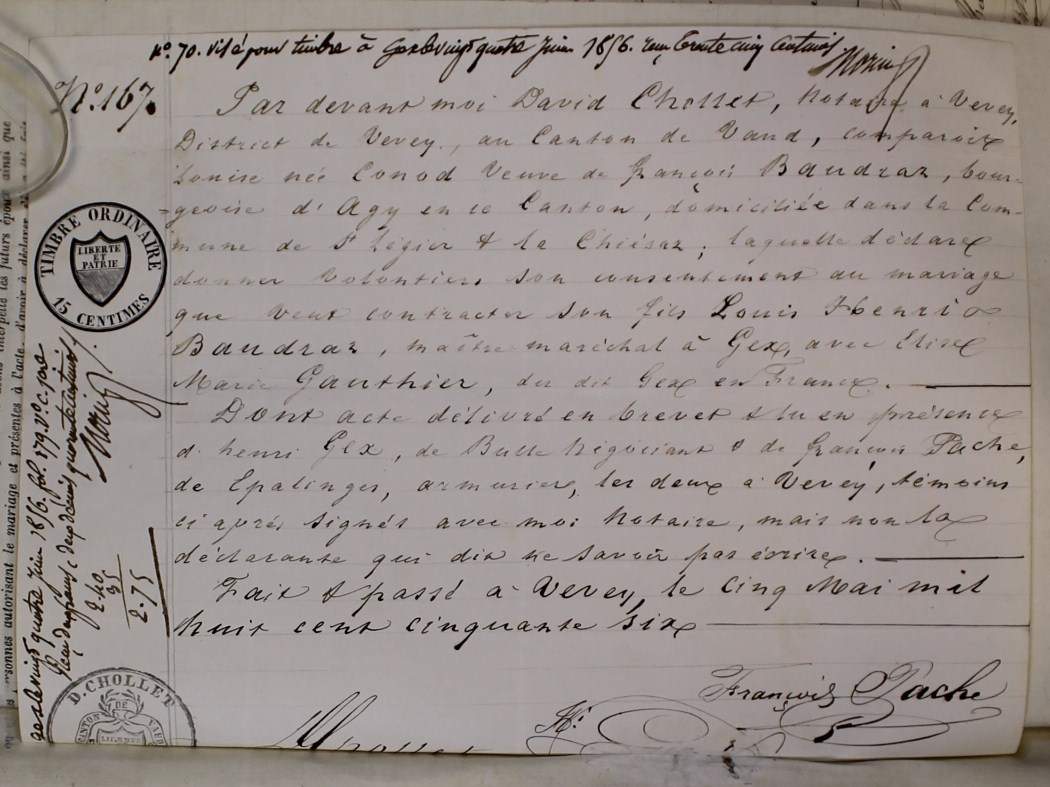 No. 70. visé pour timbre à Gex le vingt quatre juin 1856. reçu trente cinq centimes
No. 167.
Par devant moi David Chollet, Notaire à Vevey,
District de Vevey, au Canton de Vaud, comparoit
Louise née Conod Veuve de François Baudraz, bour-
=geoise d'Agy en ce Canton, domiciliée dans la Com-
mune de St Légier & la Chiésaz; laquelle déclare
donner volontiers son consentement au mariage
que veut contracter son fils Louis Henri
Baudraz, maître maréchal à Gex, avec Elise
Marie Gauthier, du dit Gex en France.
Dont acte délivré en brevet & lu en présence
d'henri Gex, de Bulle Négociant & de françois Pache,
de Epalinges, armurier, les deux à Vevey, témoins
ci après signés avec moi Notaire, mais non la
déclarante qui dit ne savoir pas écrire.
Fait & passé à Vevey, le Cinq Mai mil
huit cent cinquante six
François Pache
Hi
TIMBRE ORDINAIRE
LIBERTE
ET
PATRIE
15 CENTIMES
Gex le vingt quatre juin 1856. fol. 179 Vo. c.
Reçu deux francs, deux décimes quarante centimes
2.40
35
2.75
D. CHOLLET
CANTON DE VAUD
personnes autorisant le mariage et présentes à l'acte, d'avoir à déclarer
interpellé les futurs époux ainsi que